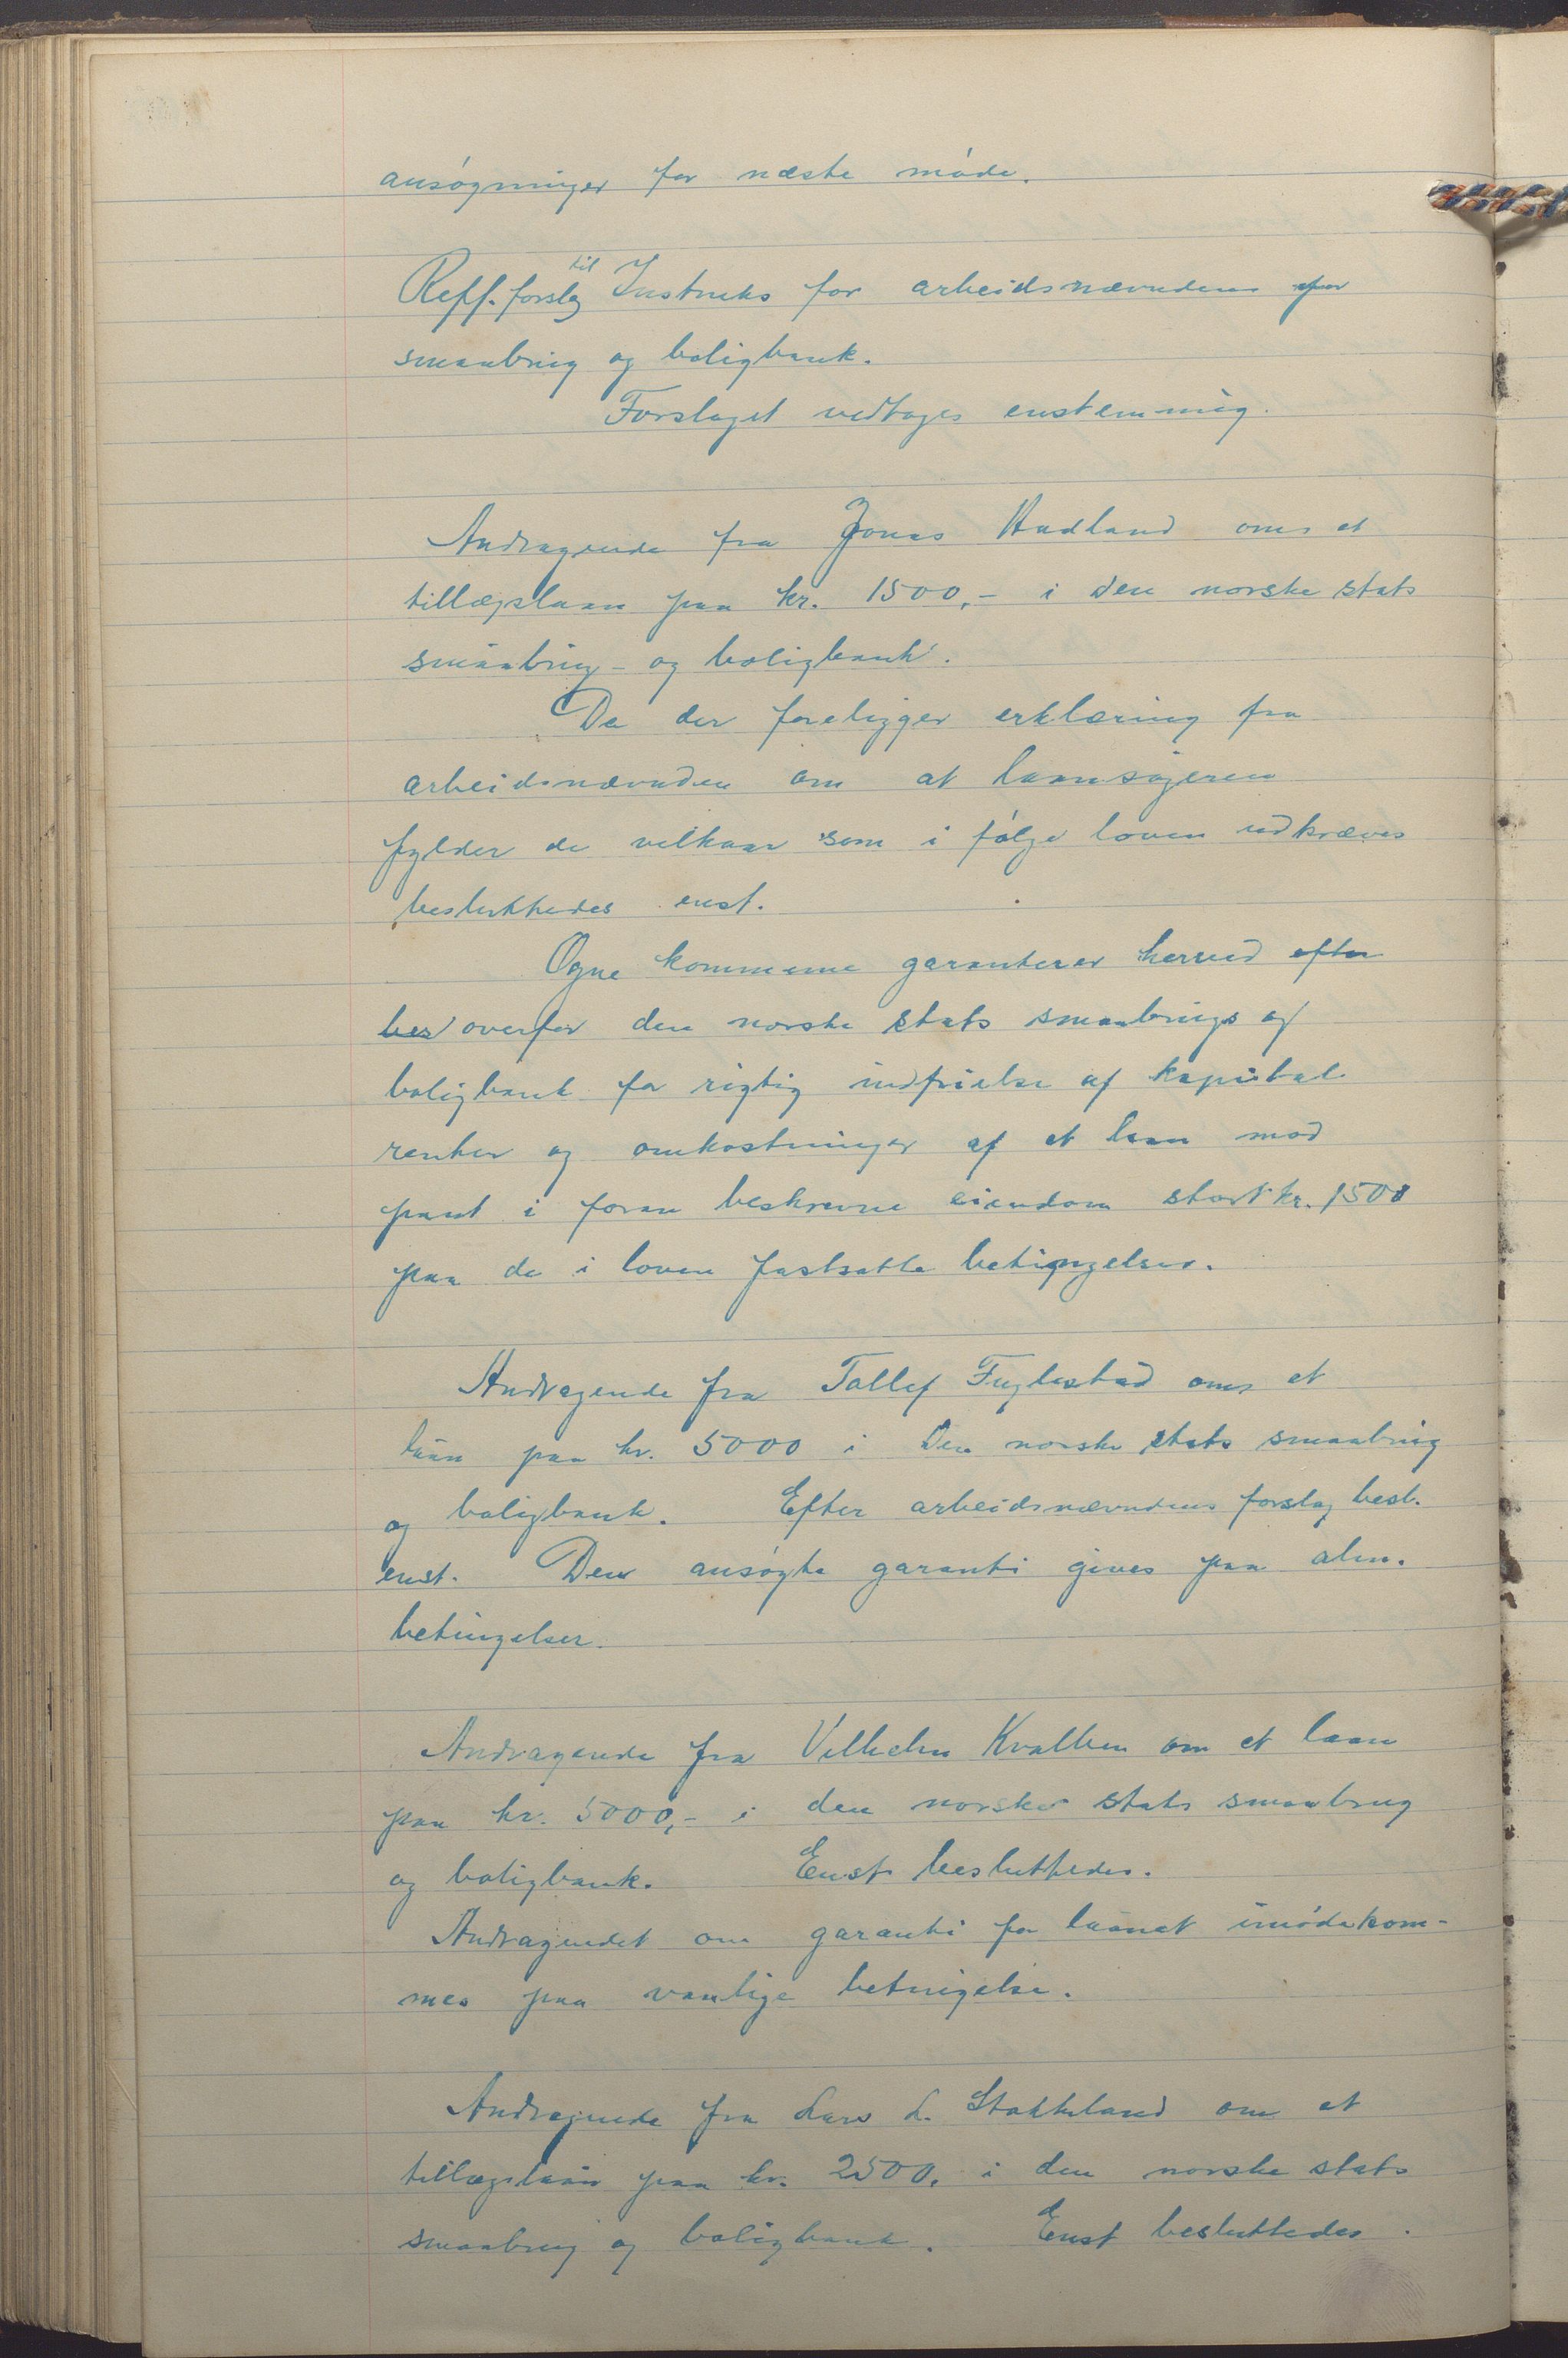 ansøgninger for næste møde.
Reff. forslag til Instruks for arbeidsnævndens for
smaabrug og boligbank.
Forslaget vedtages enstemmig.
Andragende fra Jonas Hadland om et
tillægslaan paa kr. 1500,- i den norske stats
smaabrug- og boligbank.
Da der foreligger erklæring fra
arbeidsnævnden om at laansøgeren
fylder de vilkaar som i følge loven udkræves
besluttedes enst.
Ogne kommune garanterer herved efter
bes overfor den norske stats smaabrugs og
boligbank for rigtig indfrielse af kapital
renter og omkostninger af et laan mod
pant i foran beskrevne eiendom stort kr. 1500
paa de i loven fastsatte betingelser.
Andragende fra Tollef Fuglestad om et
laan paa kr. 5000 i Den norske stats smaabrug
og boligbank. Efter arbeidsnævndens forslag besl.
enst. Den ansøgte garanti gives paa alm.
betingelser.
Andragende fra Vilhelm Kvalben om et laan
paa kr. 5000,- i den norske stats smaabrug
og boligbank. Enst besluttedes.
Andragendet om garanti for laanet imødekom-
mes paa vanlige betingelse.
Andragende fra Lars L. Stokkeland om et
tillægslaan paa kr. 2500. i den norske stats
smaabrug og boligbank. Enst besluttedes.